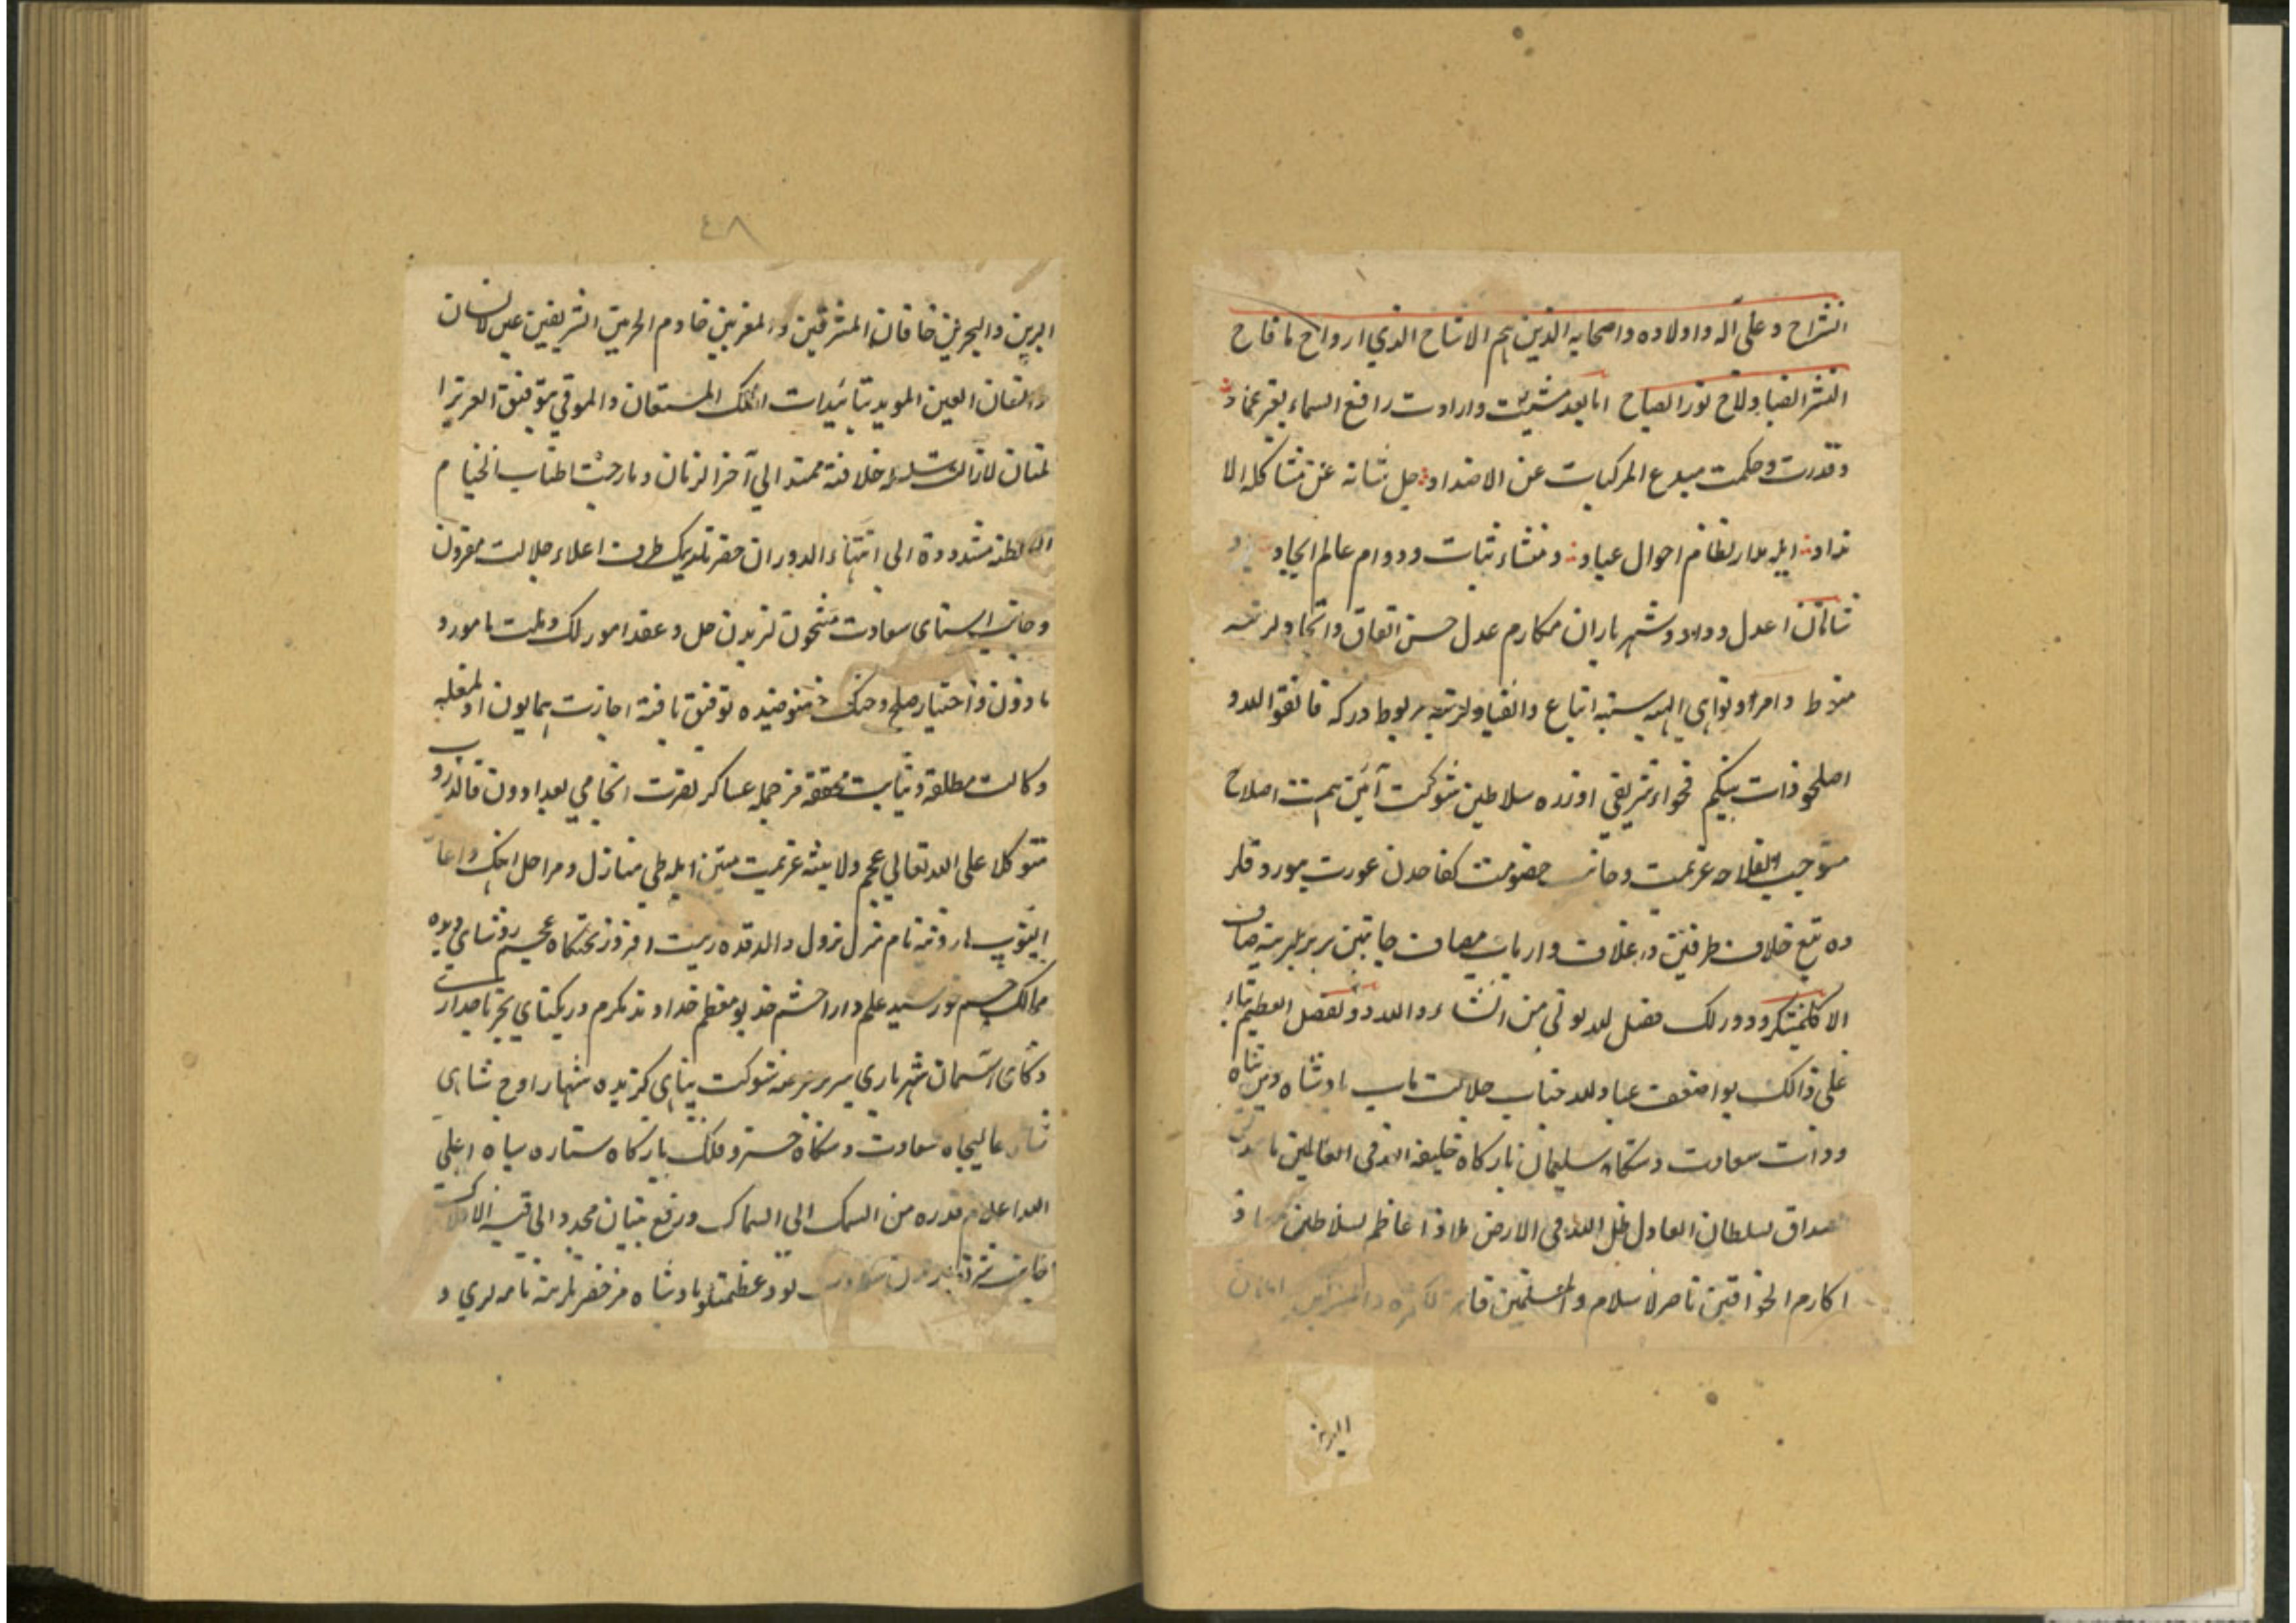 انشراح و على آله و اولاده و اصحابه الذين هم الاشباح الذي ارواح ما فاح
النشر الصبا ولاح نور الصباح اما بعد مشيت وارادت رافع السماء بغير عماد
وقدرت وحكمت مبدع المركبات عن الاضداد جل شانه عن مشاكله الا
نداد ايله مدار نظام احوال عباد و منشاء ثبات ودوام عالم ايجاد
اعدل وداد و شهرياران مكارم عدل حسن اتفاق و اتحادلرينه
منوط و امر و نواهى الهيه سنيه اتباع و انقيادلرينه مربوط دركه فاتقوا الله و
اصلحوا ذات بينكم فحواء شريفى اوزره سلاطين شوكت آئين همت اصلاح
عزيمت و جانب خصومت كفاحدن عودت بيوردقلر
ده تيغ خلاف طرفين در غلاف و ارباب مصاف جانبين بربرلرينه صاف
فضل الله يؤتى من الشاء والله ذو الفضل العظيم بناء
على ذالك عباد الله جناب جلالت مآب پادشاه دين پناه
و ذات سعادت دستكاه سليمان باركاه خليفة الله فى العالمين
مصداق السلطان العادل ظل الله فى الارض ملاذ اعاظم سلاطين معاذ
اكارم الخواقين ناصر الاسلام و المسلمين
البرين
٤٨
البرين والبحرين خاقان المشرقين و المغربين خادم الحرمين الشريفين عين الانسان
و انسان العين المويد بتائيدات الملك المستعان والموفق بتوفيق العزيز ا
لمنان لازالت سلسلة خلافته ممتد الى آخر الزمان و مابرحت اطناب الخيام
السلطنه مشدودة الى انتهاء الدوران حضرتلرينك طرف اعلاء جلالت مقرون
و جانب اسناى سعادت مشحونلرندن حل و عقد امور ملك و ملت مامور و
ماذون و اختيار صلح و جنك تفويضيده توفيق يافته اجازت همايون اولمغله
وكالت مطلقه و نيابت محققه مز جمله عساكر نصرت انجامى بغداددن قالدروب
متوكلا على الله تعالى عجم ولايتنه عزيمت متين ايله طى منازل و مراحل
ايتوب هارونيه نام منزل نزول زينت افروز تختكاه عجم روشناى ديده
ممالك جم خورشيد علم دارا حشم خديو معظم خداوند مكرم در يكتاى بحر تاجدارى
ذكاى آسمان شهريارى سرير شوكت پناهى كزيده شهبار اوج شاهى
شاه عاليجاه سعادت دستكاه خسرو فلك باركاه ستاره سپاه اعلى
الله اعلام قدره من السمك الى السماك و رفع بنيان مجده الى قبة الافلاك
جانب عظمتلو پادشاه مز حضرتلرينه نامه لرى و